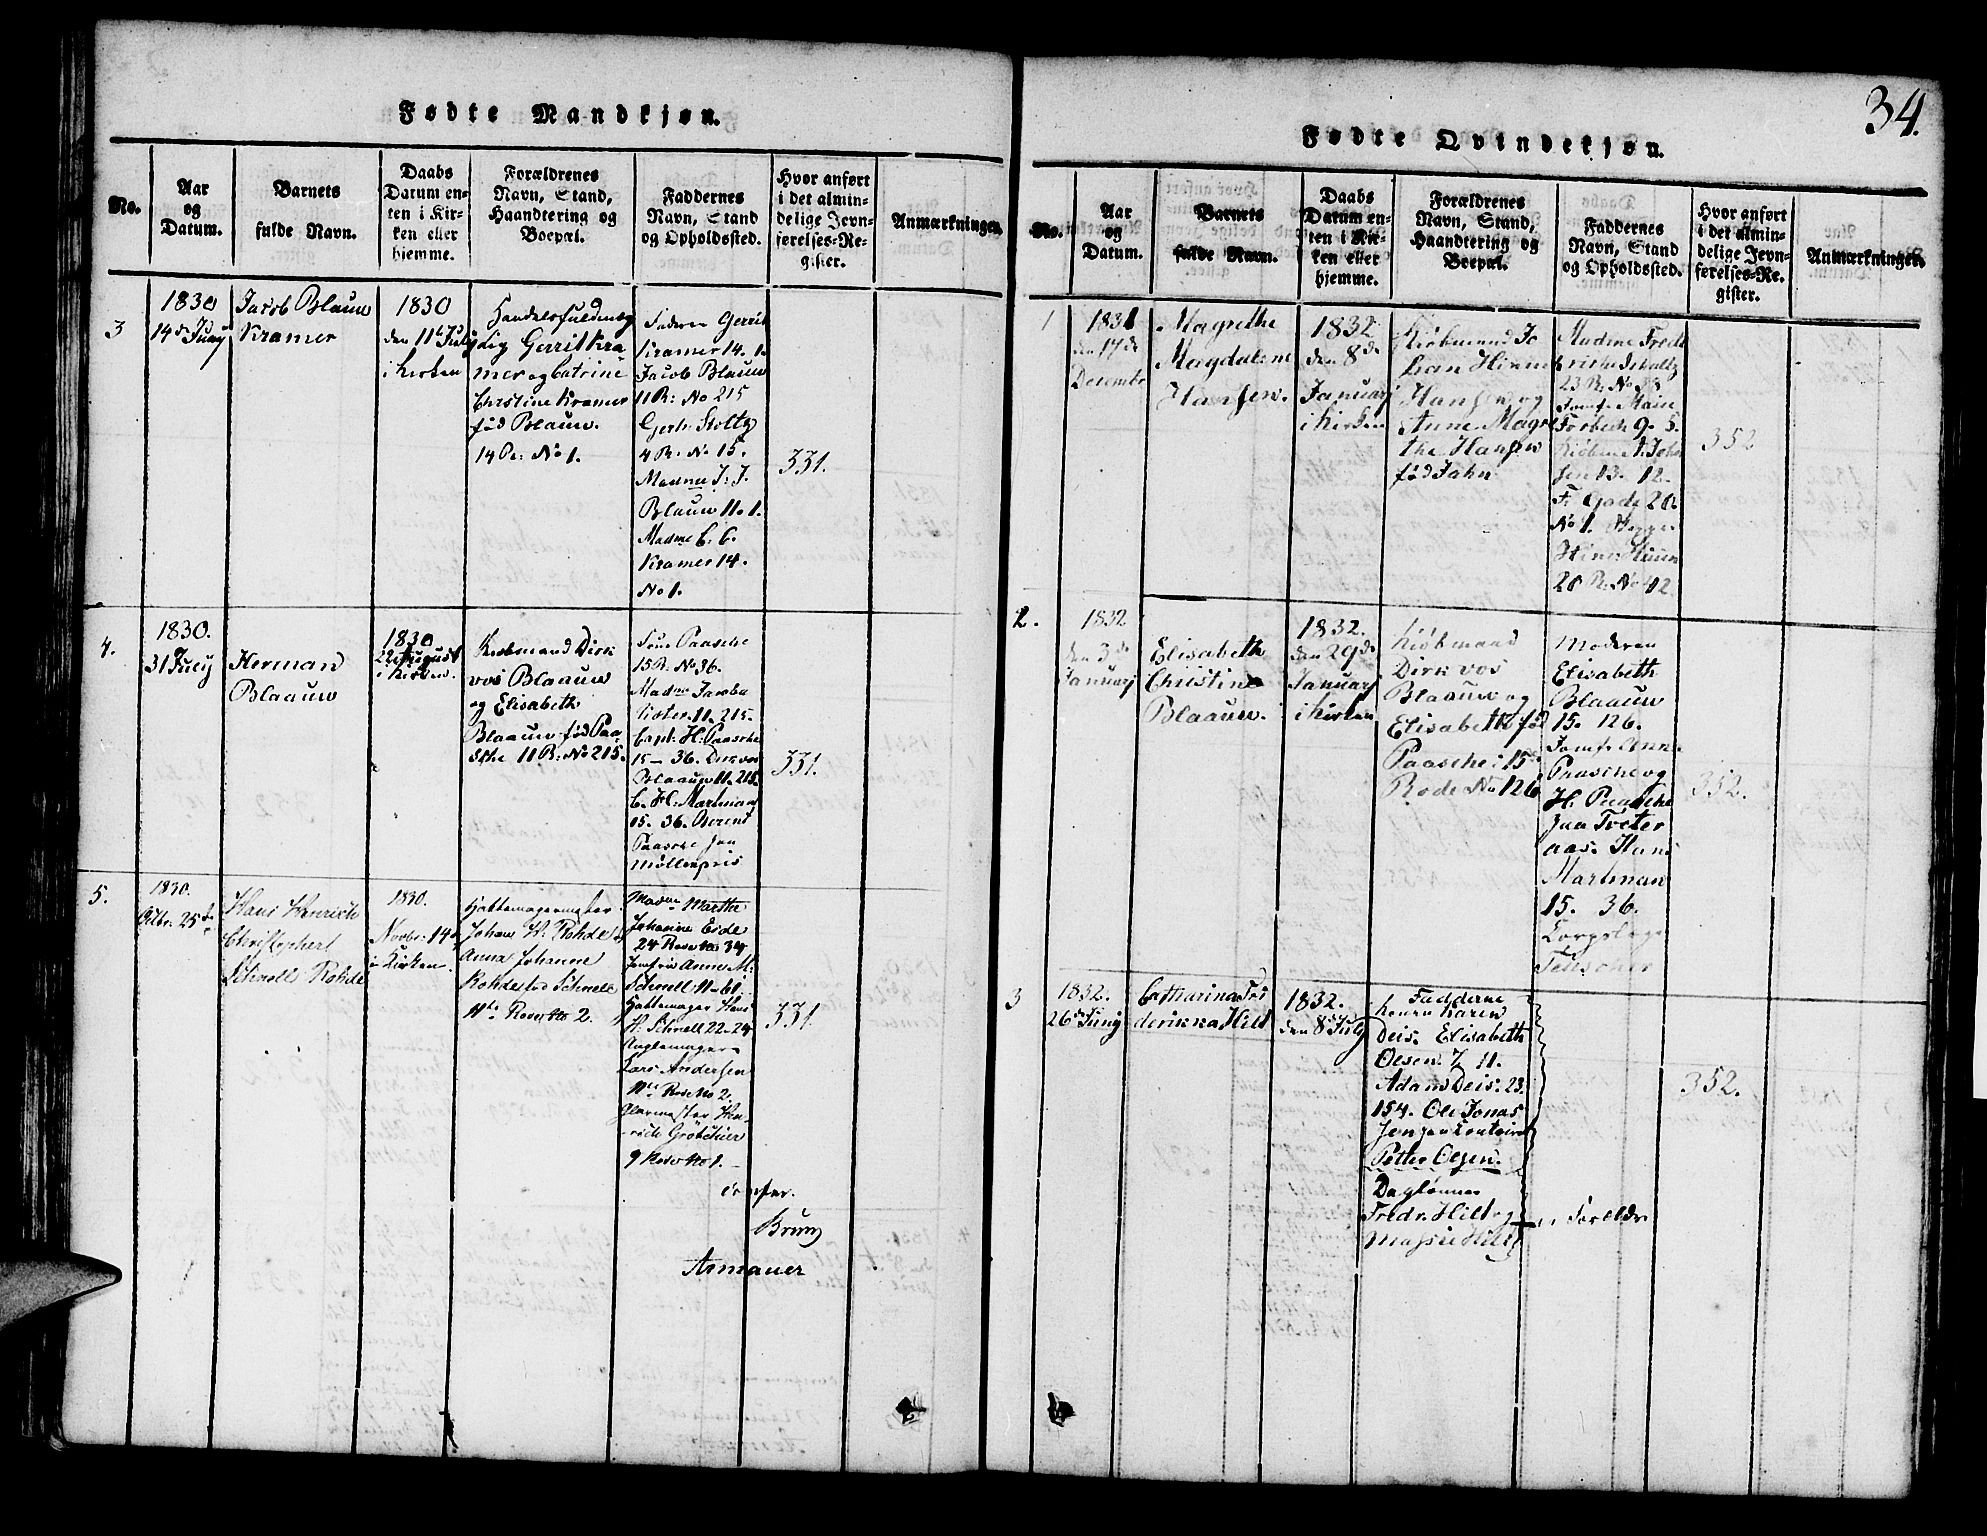 Fødte Mandkjøn.
No.
Aar
og
Datum.
Barnets
fulde Navn.
Daabs
Datum en-
ten i Kir-
ken eller
hjemme.
Forældrenes
Navn, Stand,
Haandtering og
Boepæl.
Faddernes
Navn, Stand
og Opholdssted.
Hvor anført
i det almin-
delige Jevn-
førelses-Re-
gister.
Anmærkninger.
3
1830
14de July
Jacob Blauw
Kramer
1830
den 11te July
i Kirken
Lig Gerrit Kra
mer og Catrine
Christine Kramer
fød Blauw.
14 R: No 1.
Faderen Gerrit
Kramer 14. 1.
Jacob Blauw
11 R: No 215
Gerh: Stoltz
4 R: No 15.
Madme J: J.
Blauw 11. 1.
Madme C. C.
Kramer 14.
No 1.
331.
4.
1830.
31 July
Herman
Blaauw
1830
22 August
i Kirken.
Kiøbmand Dirk
vos Blaauw
og Elisabeth
Blaauw fød Paa
sche 11 R: No 215.
Paasche
15 R: No 36.
Madme Jacoba
11. 215.
Capt: H: Paasche
15 – 36. Dirk vos
Blaauw 11. 215.
C. H: Martman
15. 36. Berent
Paasche paa
Møllenpris
331.
5.
1830.
Octbr. 25de
Hans Henrich
Christophert
Schnell Rohde
1830.
Novbr. 14de
i Kirken.
Hattemagermester
Johan H. Rohde &
Anna Johanne
Rohde fød Schnell
11te Rode No 2.
Madme Marthe
Johanne Eide
24 Rode No 34
Jomfrue Anne M:
Schnell 11–61.
Hattemager Hans
H. Schnell 22-24
Lars Andersen
11te Rode No 2.
Glarmester Hen-
-rich Grötchier
9 Rode No 1.
Bruun
Armauer
34.
Fødte Qvindekjøn.
No.
Aar
og
Datum.
Barnets
fulde Navn.
Daabs
Datum en-
ten i Kir-
ken eller
hjemme.
Forældrenes
Navn, Stand,
Haandtering og
Boepæl.
Faddernes
Navn, Stand
og Opholdssted.
Hvor anført
i det almin-
delige Jevn-
førelses-Re-
gister.
Anmærkninger.
1
1831
den 17de
Decembr
Magrethe
Magdalene
Hansen.
1832
den 8de
Januarj
i Kirken
Kiøbmand Jo
han Hinne
Hansen og
Anne Magre
the Hansen
fød Jahn
Madme Frede
rikke Schultz
23 R. No 33
Jomf: Marie
Forbech 9. 5.
Kiøbm: A: Joha
sen 13. 12.
F: Gade 20.
No 1.
20 R. No 42
352
2.
1832
den 3de
Januarj
Elisabeth
Christine
Blaauw.
1832.
den 29de
Januarj
i Kirken
Kiøbmand
Dirk vos
Blaauw og
Elisabeth fød
Paasche: 15de
Rode No 126
Moderen
Elisabeth
Blaauw
15. 126.
Jomf: Anne
Paasche og
H. Paasche
Hans
Martman
15. 36.
352.
3
1832.
26de Junj
Catharina Fri
derikka Hilt
1832.
den 8de July
Fadderne
Karen
Deis. Elisabeth
Olsen. 7. 11.
Adam Deis. 23.
154. Ole Jonas
Jensen
Petter Olsen.
Daglønner
Fredr. Hilt og
Hilt
Foreldre
352.